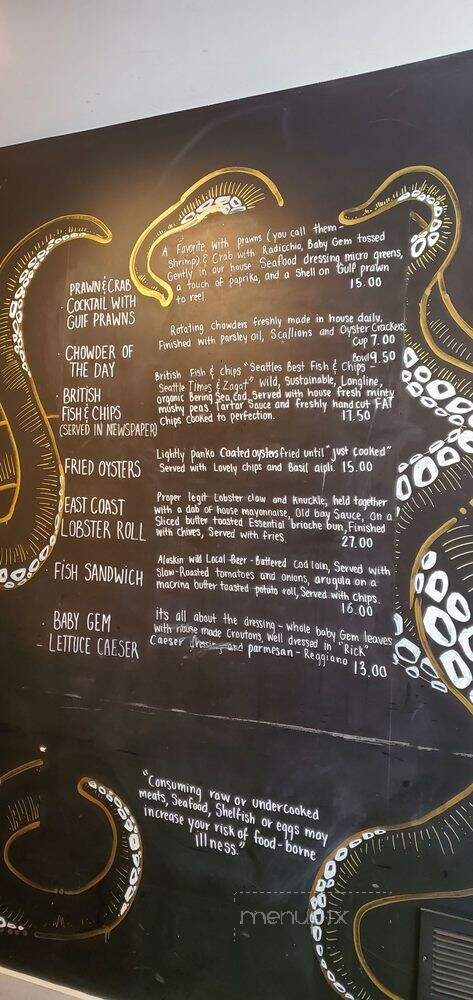 PRAWN & CRAB
COCKTAIL WITH
GUlF PRAWNS
A Favorite, with prawns (you call them -
shrimp) & Crab with Radicchio, Baby Gem tossed
Gently in our house Seafood dressing micro greens,
a touch of paprika, and a Shell on Gulf prawn
to reel. 15.00
· CHOWDER OF
THE DAY
Rotating chowders freshly made in house daily,
Finished with parsley oil, Scallions and Oyster Crackers
Cup 7.00
Bowl 9.50
· BRITISH
FISH & CHIPS
(SERVED IN NEWSPAPER)
British Fish & Chips "Seattles Best Fish & Chips -
Seattle Times & Zagat" Wild, Sustainable, Longline,
organic Bering Sea Cod, Served with house fresh minty
mushy peas. Tartar Sauce and freshly hand cut FAT
Chips Cooked to perfection. 17.50
FRIED OYSTERS
Lightly panko Coated oysters fried until "just cooked"
Served with Lovely chips and Basil aioli. 15.00
EAST COAST
LOBSTER ROLL
Proper legit Lobster claw and knuckle, held together
with a dab of house mayonnaise, Old bay Sauce, on a
Sliced butter toasted Essential brioche bun, Finished
with chives, Served with fries.
27.00
· FISH SANDWICH
Alaskan wild Local Beer-Battered Cod loin, Served with
Slow-Roasted tomatoes and onions, arugula on a
macrina butter toasted potato roll, Served with chips.
16.00
BABY GEM
- LETTUCE CAESER
it's all about the dressing - whole baby Gem leaves
with house made Croutons, Well dressed in "Rick"
Caeser Dressing and parmesan - Reggiano 13.00
"Consuming raw or undercooked
meats, Seafood, Shelfish or eggs may
increase your risk of food-borne
illness."
menupix